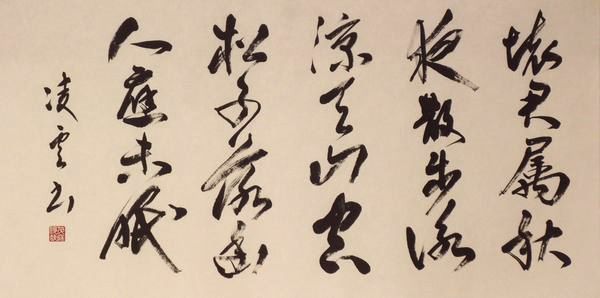 懷君屬秋
夜散步詠
涼天山空
松子落幽
人應未眠
凌雲书